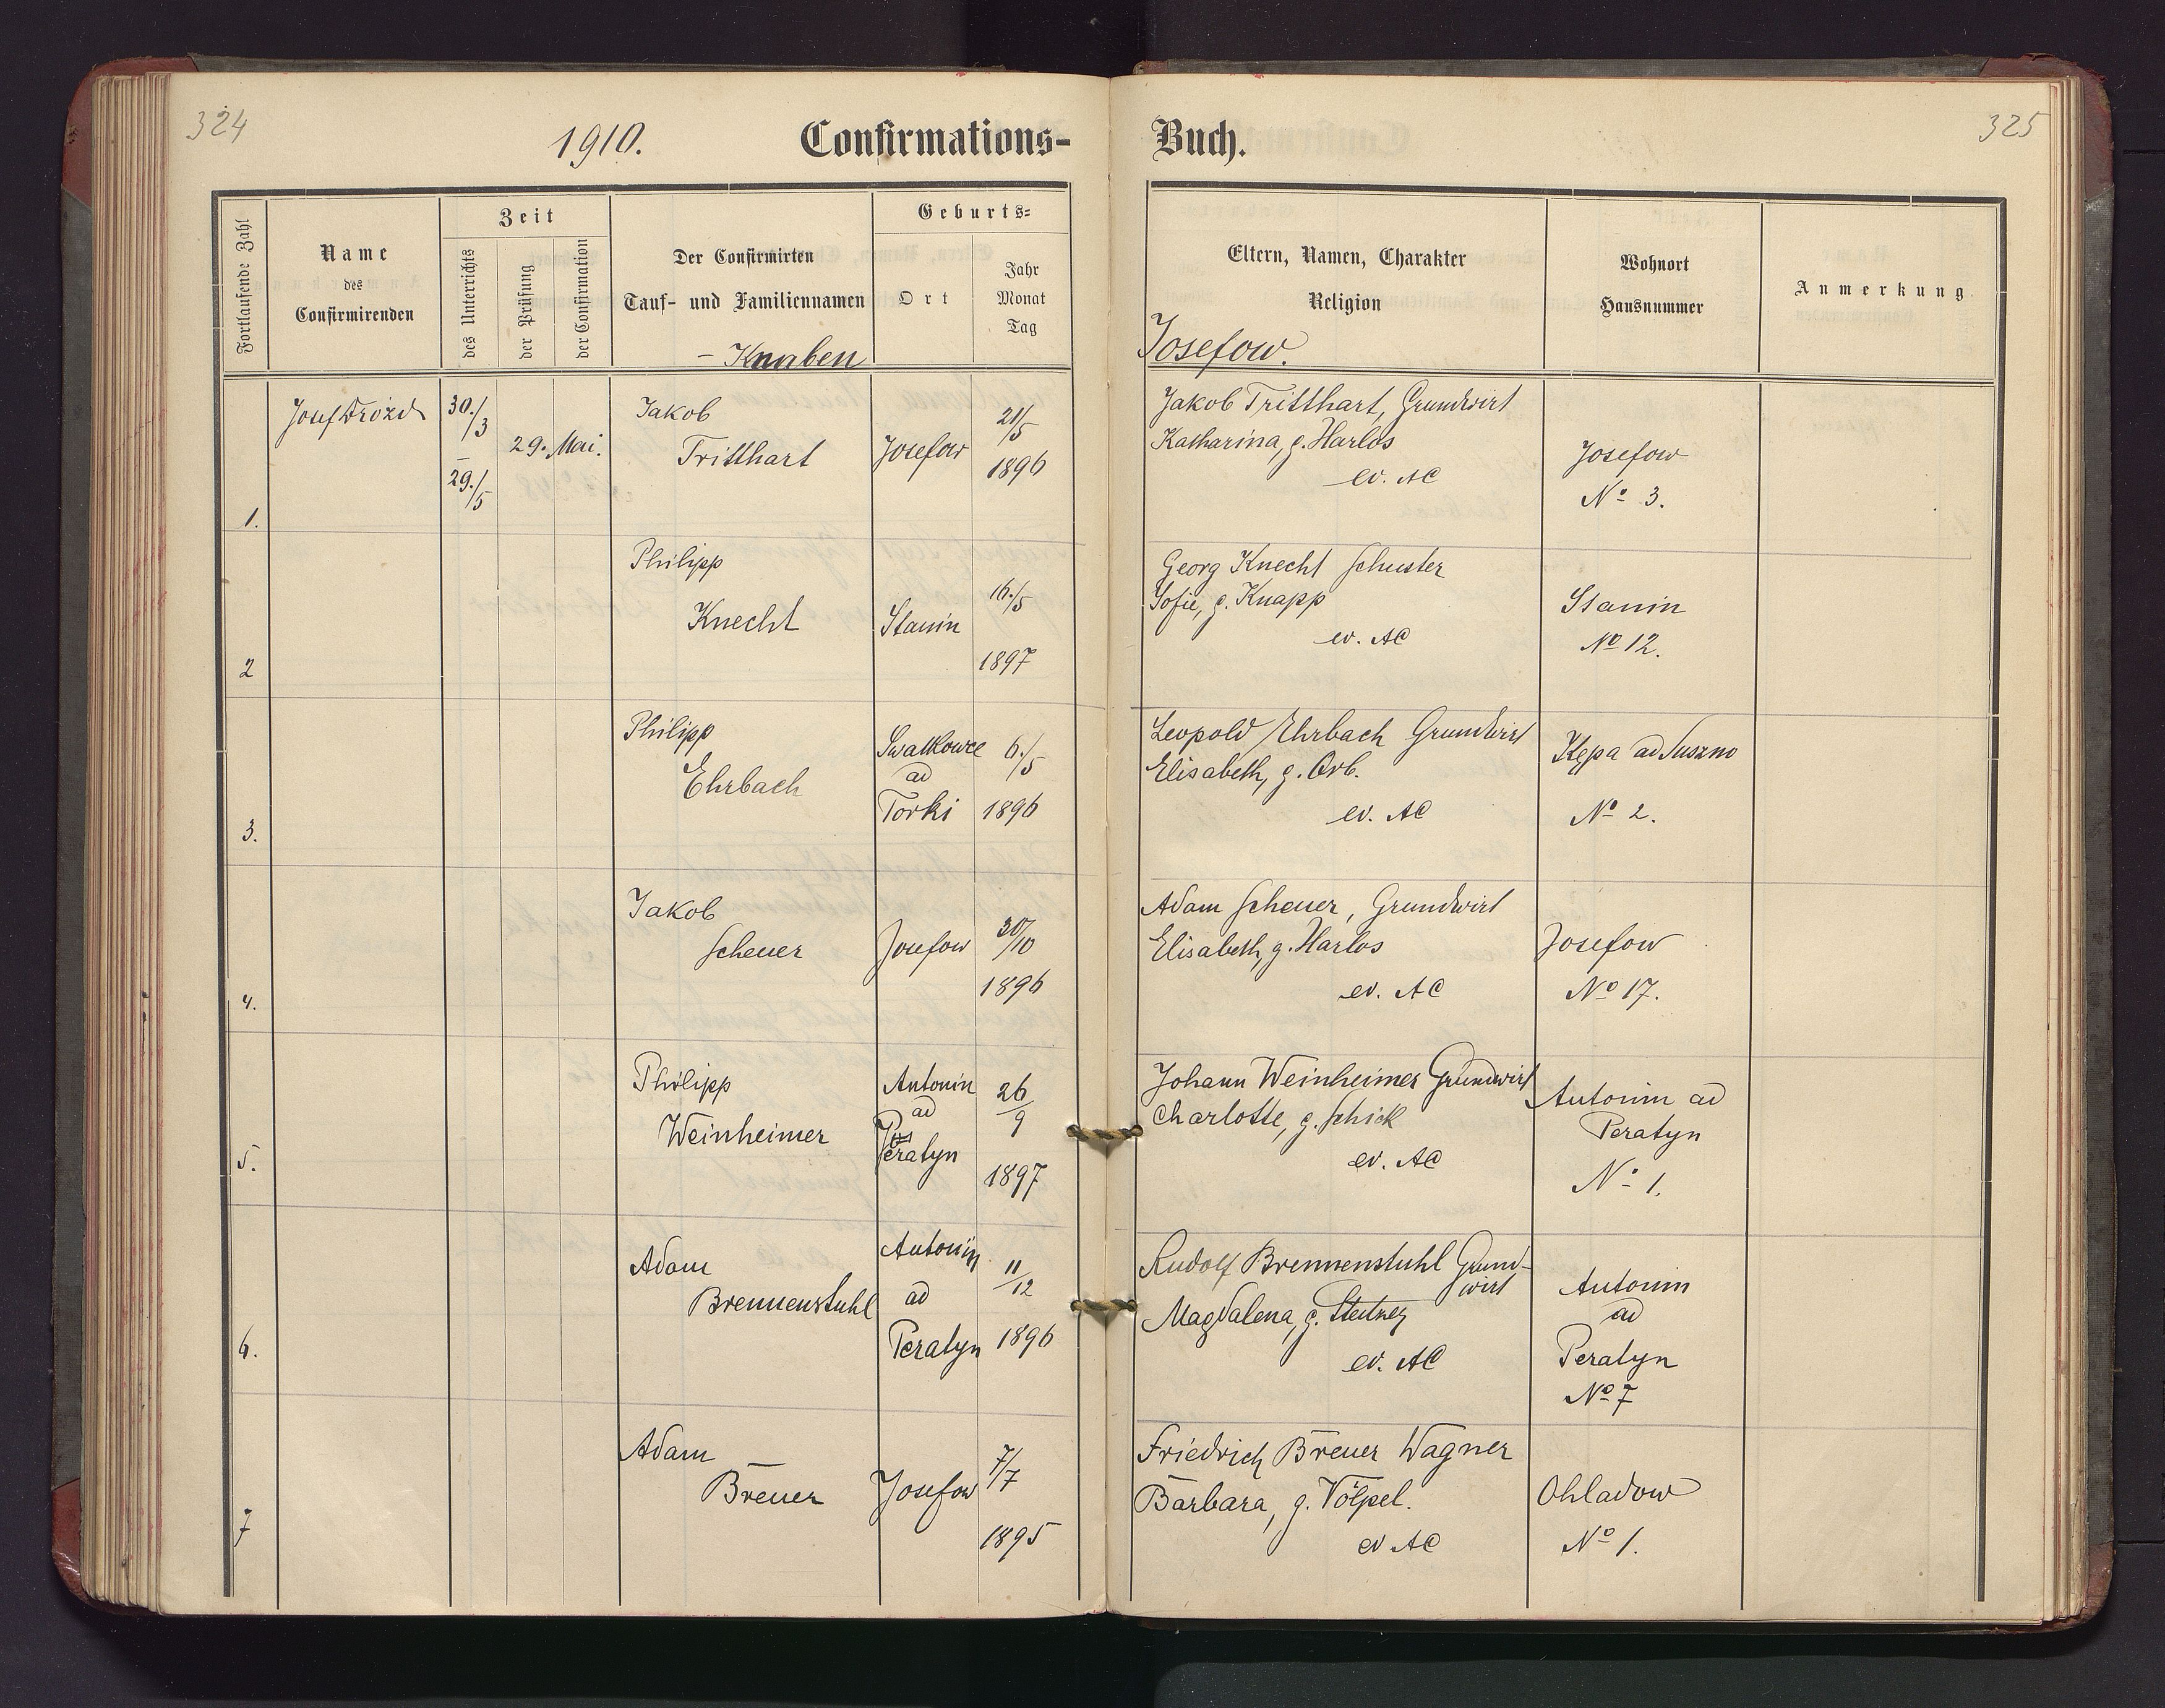 324
1910.
Confirmations-
Buch.
325
Fortlaufende Zahl
Name
des
Confirmirenden
Zeit
des Unterrichts
der Prüfung
der Confirmation
Der Confirmirten
Tauf- und Familiennamen
- Knaben
Geburts-
Ort
Jahr
Monat
Tag
Eltern, Namen, Charakter
Religion
Josefow.
Wohnort
Hausnummer
Anmerkung
1.
Josef Drozd
30./3
-
29./5
29. Mai.
Jakob
Tritthart
Josefow
21/5
1896
Jakob Tritthart, Grundwirt
Katharina, g. Harlos
ev. AC
Josefow
No 3.
2
Philipp
Knecht
Stanin
16./5
1897
Georg Knecht Schuster
Sofie, g. Knapp
ev. AC
Stanin
No 12.
3.
Philipp
Ehrbach
ad
Torki
6./5
1896
Leopold Ehrbach Grundwirt
Elisabeth, g. Orb.
ev. AC
Kępa ad Suszno
No 2.
4.
Jakob
Scheuer
Josefow
30/10
1896
Adam Scheuer, Grundwirt
Elisabeth, g. Harlos
ev. AC
Josefow
No 17.
5.
Philipp
Weinheimer
Antonin
ad
Peratyn
26/9
1897
Johann Weinheimer Grundwirt
Charlotte, g. Schick
ev. AC
Antonin ad
Peratyn
No 1.
6.
Adam
Brennenstuhl
Antonin
ad
Peratyn
11/12
1896
Rudolf Brennenstuhl Grund-
wirt
Magdalena, g.
ev. AC
Antonin
ad
Peratyn
No 7
7
Adam
Breuer
Josefow
7/7
1895
Friedrich Breuer Wagner
Barbara, g. Völpel.
ev AC
Ohladow
No 1.